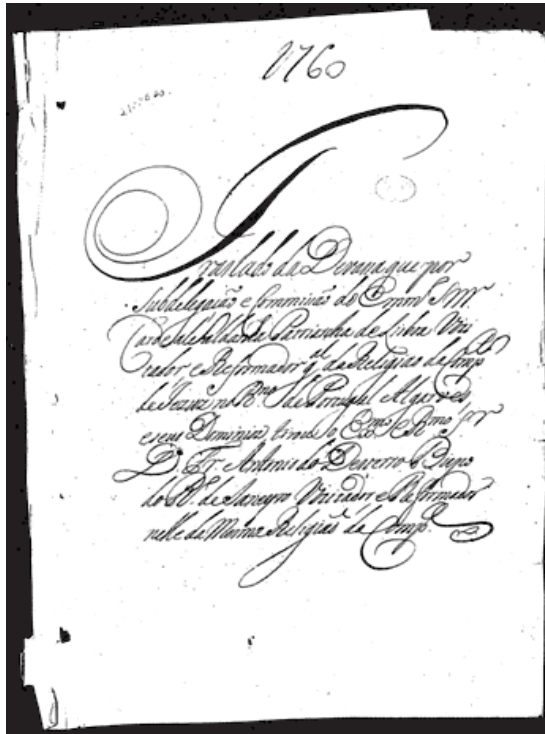 1760
Traslado da Devaça que por
Subdelegação e Commissão do Emmo Snr
Cardeal Saldanha Patriarcha de Lisboa Vizi
tador e Reformador gl da Religião da Compa
de Jezus no Rno de Portugal Algarves
e seus Dominios tirou o Exmo e Rmo Sr
D. Fr. Antonio do Desterro Bispo
do Ro de Janeyro Vizitador e Reformador
nelle da Mesma Religião da Compa